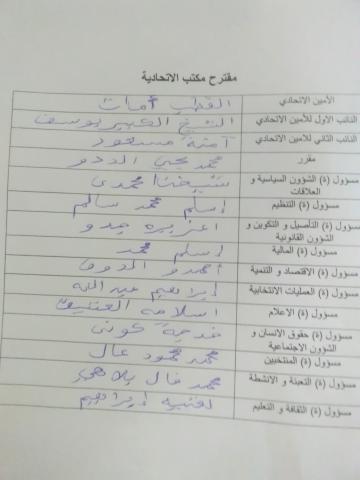 مقترح مكتب الاتحادية
الأمين الاتحادي القطب أمات
النائب الاول للأمين الاتحادي الشيخ الكبير يوسف
النائب الثاني للأمين الاتحادي آمنة مسعود
مقرر محمد يحي الددو
مسؤول (ة) الشؤون السياسية و شيخنا امحمدي
العلاقات
مسؤول (ة) التنظيم إسلم محمد سالم
مسؤول (ة) التأصيل و التكوين و اعزيزه جدو
الشؤون القانونية
مسؤول (ة) المالية إسلم محمد
مسؤول (ة) الاقتصاد و التنمية احمدو
مسؤول (ة) العمليات الانتخابية إبراهيم عبد الله
مسؤول (ة) الاعلام اسلامه العتيق
مسؤول (ة) حقوق الانسان و خديجة
الشؤون الاجتماعية
مسؤول (ة) المنتخبين محمد محمود عال
مسؤول (ة) التعبئة و الانشطة محمد فال
مسؤول (ة) الثقافة و التعليم إبراهيم